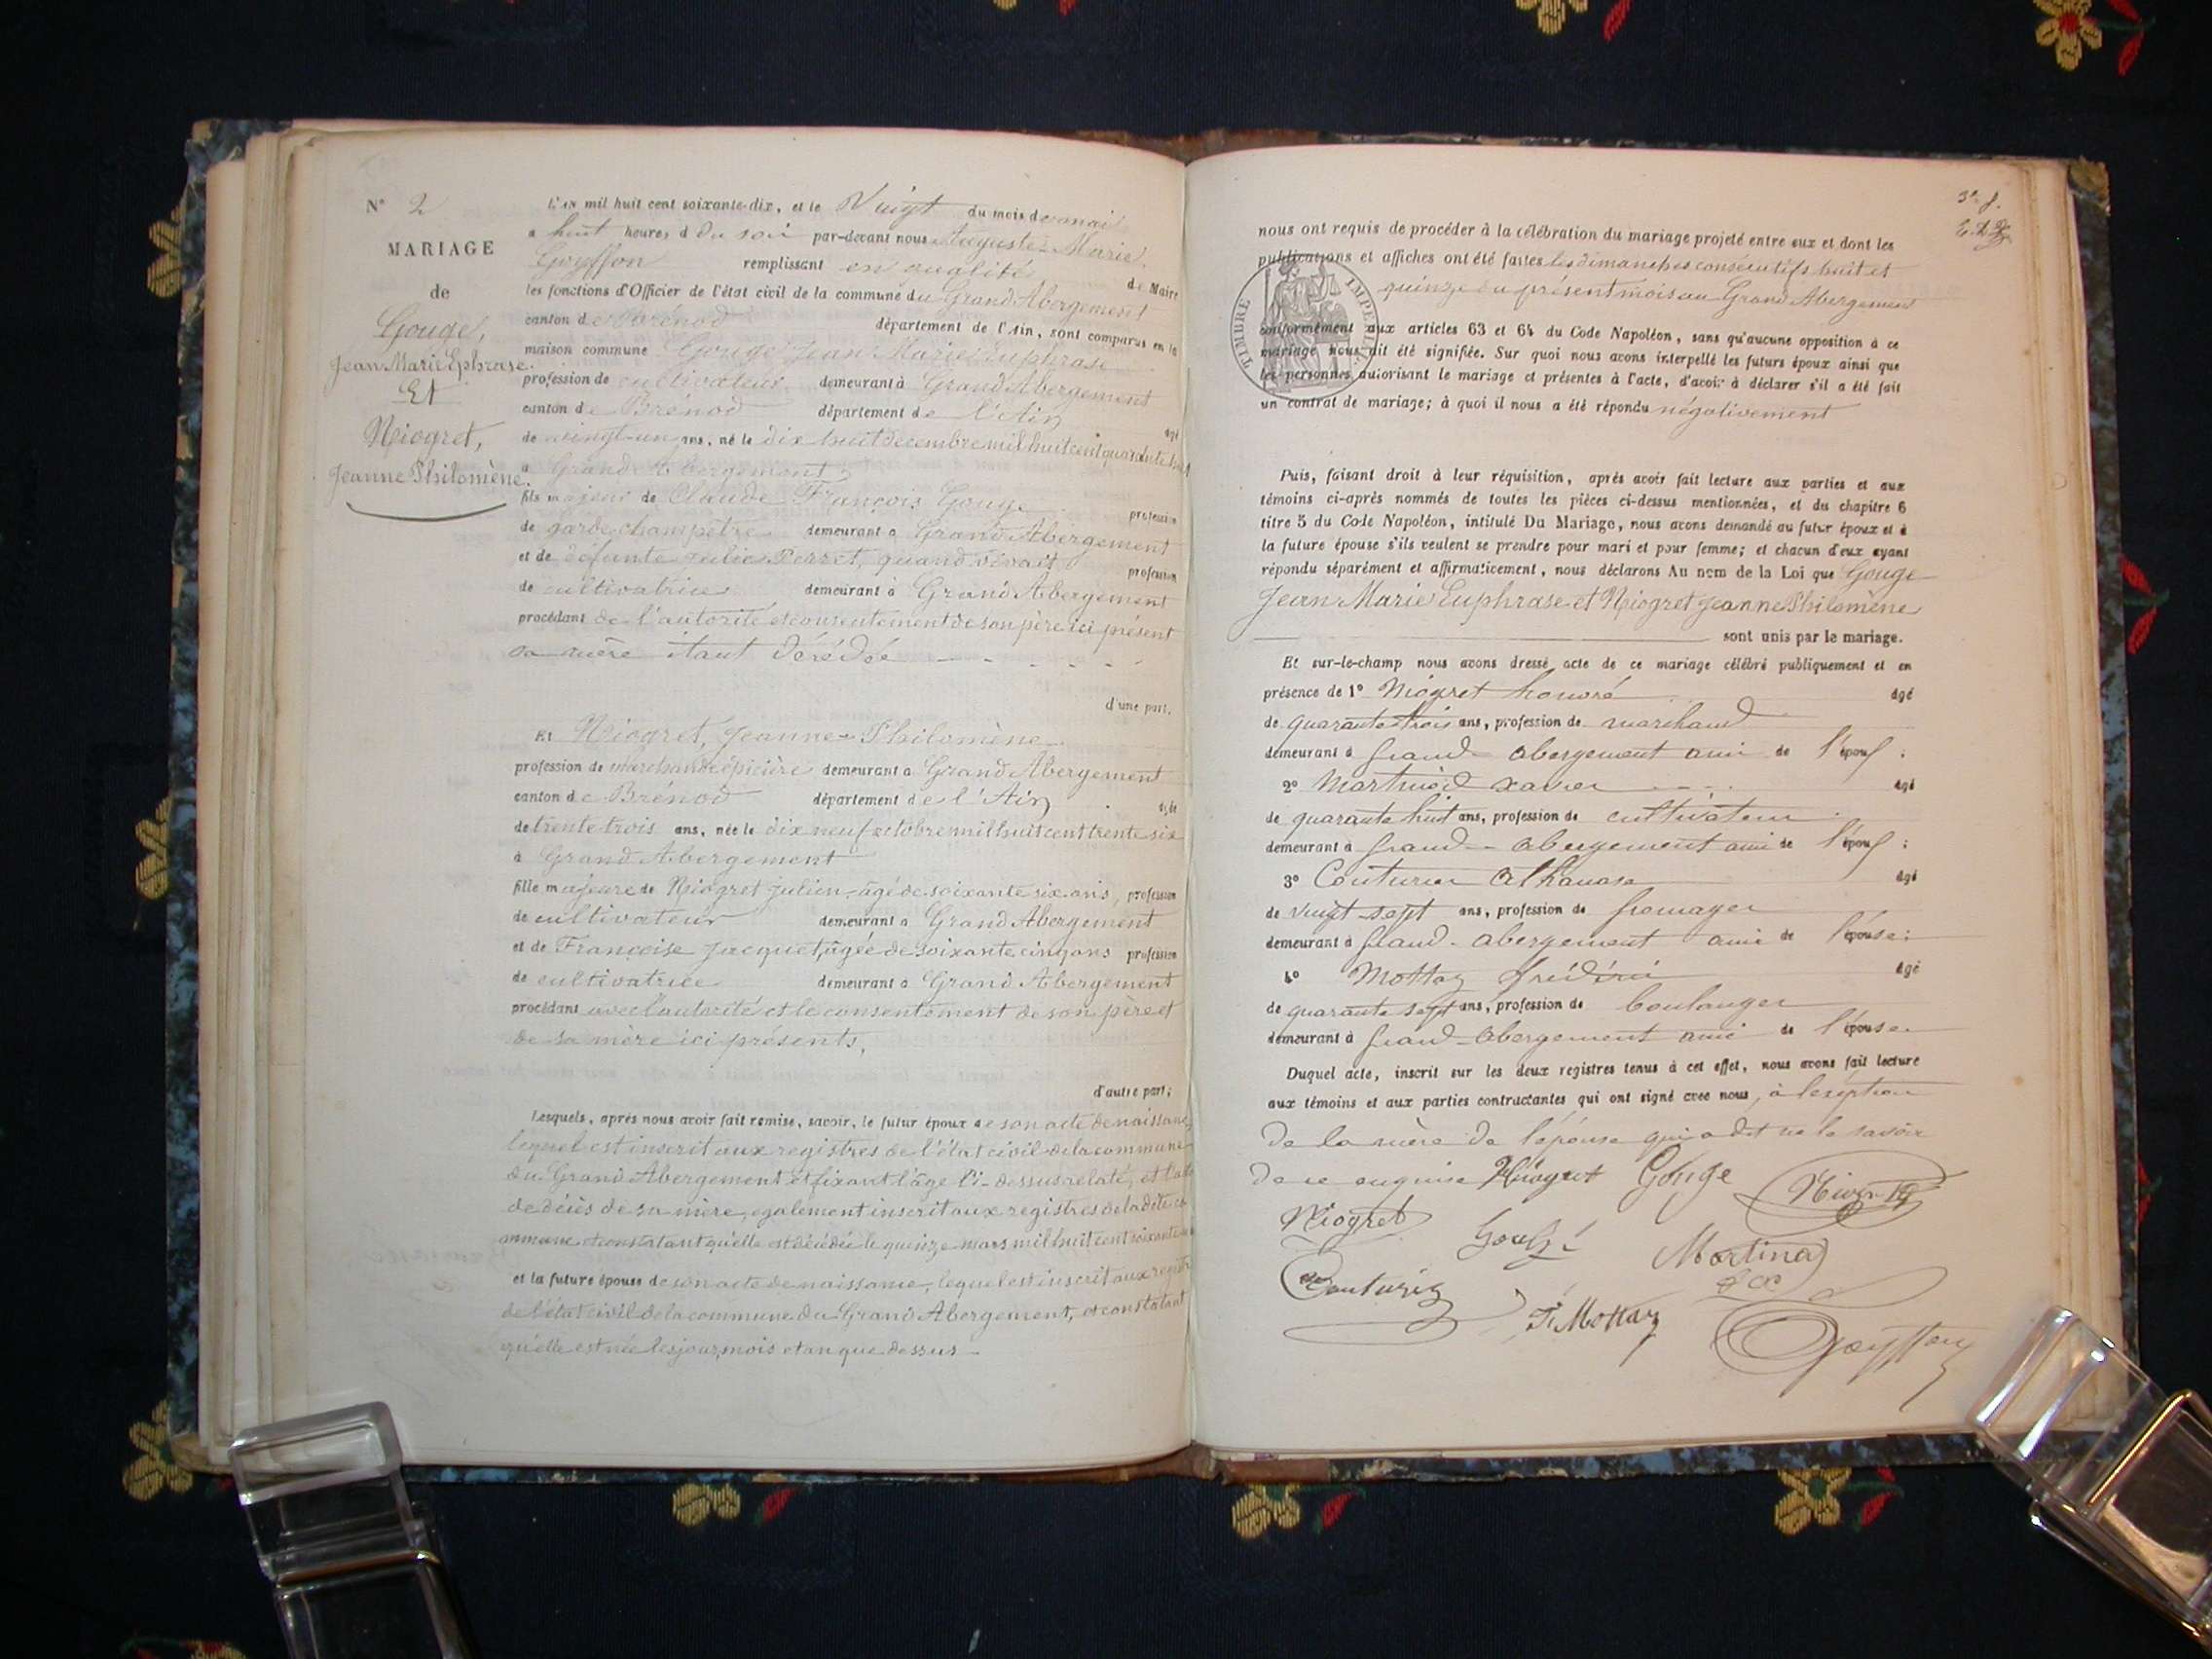 N° 2
MARIAGE
de
Gouge,
Jean Marie Ephrase.
Et
Niogret,
Jeanne Philomène.
L'an mil huit cent soixante-dix, et le Vingt du mois de mai
à huit heures d du soir par-devant nous Auguste Marie
Goyffon remplissant en qualité de Maire
les fonctions d'Officier de l'état civil de la commune du Grand Abergement
canton de Brénod département de l'Ain, sont comparus en la
maison commune Gouge Jean Marie Euphrase
profession de cultivateur demeurant à Grand Abergement
canton de Brénod département de l'Ain âgé
de vingt-un ans, né le dix huit décembre mil huit cent quarante huit
à Grand Abergement
fils majeur de Claude François Gouge profession
de garde champêtre demeurant à Grand Abergement
et de défunte Julie Perret, quand vivait profession
de cultivatrice demeurant à Grand Abergement
procédant de l'autorité et consentement de son père ici présent
sa mère étant décédée
d'une part.
Et Niogret, Jeanne-Philomène
profession de marchande épicière demeurant à Grand Abergement
canton de Brénod département de l'Ain âgée
de trente trois ans, née le dix neuf octobre mil huit cent trente six
à Grand Abergement
fille majeure de Niogret Julien, âgé de soixante six ans, profession
de cultivateur demeurant à Grand Abergement
et de Françoise Jacquet, âgée de soixante cinq ans profession
de cultivatrice demeurant à Grand Abergement
procédant avec l'autorité et le consentement de son père et
de sa mère ici présents,
d'autre part;
Lesquels, après nous avoir fait remise, savoir, le futur époux de son acte de naissance,
lequel est inscrit aux registres de l'état civil de la commune
du Grand Abergement et fixant l'âge ci-dessus relaté, et l'acte
de décès de sa mère, egalement inscrit aux registres de la dite co
mmune et constatant qu'elle est décédée le quinze mars mil huit cent soixante
et la future épouse de son acte de naissance, lequel est inscrit aux registres
de l'état civil de la commune du Grand Abergement, et constatant
qu'elle est née les jour, mois et an que dessus
nous ont requis de procéder à la célébration du mariage projeté entre eux et dont les
publications et affiches ont été faites les dimanches consécutifs huit et
quinze du présent mois au Grand Abergement
TIMBRE IMPERIAL
conformément aux articles 63 et 64 du Code Napoléon, sans qu'aucune opposition à ce
mariage nous ait été signifiée. Sur quoi nous avons interpellé les futurs époux ainsi que
les personnes autorisant le mariage et présentes à l'acte, d'avoir à déclarer s'il a été fait
un contrat de mariage; à quoi il nous a été répondu négativement
Puis, faisant droit à leur réquisition, après avoir fait lecture aux parties et aux
témoins ci-après nommés de toutes les pièces ci-dessus mentionnées, et du chapitre 6
titre 5 du Code Napoléon, intitulé Du Mariage, nous avons demandé au futur époux et à
la future épouse s'ils veulent se prendre pour mari et pour femme; et chacun d'eux ayant
répondu séparément et affirmativement, nous déclarons Au nom de la Loi que Gouge
Jean Marie Euphrase et Niogret Jeanne Philomène
sont unis par le mariage.
Et sur-le-champ nous avons dressé acte de ce mariage célébré publiquement et en
présence de 1° Niogret honoré âgé
de quarante trois ans, profession de marchand
demeurant à Grand abergement ami de l'époux;
2° Martinod xavier âgé
de quarante huit ans, profession de cultivateur
demeurant à Grand abergement ami de l'époux;
3° Couturier Athanase âgé
de vingt-sept ans, profession de fromager
demeurant à Grand-abergement ami de l'épouse;
4° Mottaz frédéric âgé
de quarante sept ans, profession de boulanger
demeurant à Grand-abergement ami de l'épouse
Duquel acte, inscrit sur les deux registres tenus à cet effet, nous avons fait lecture
aux témoins et aux parties contractantes qui ont signé avec nous, à l'eséption
de la mère de l'épouse qui a dit ne le savoir
de ce enquise Niogret Gouge
Niogret Martinod
Couturier F. Mottaz Goyffon